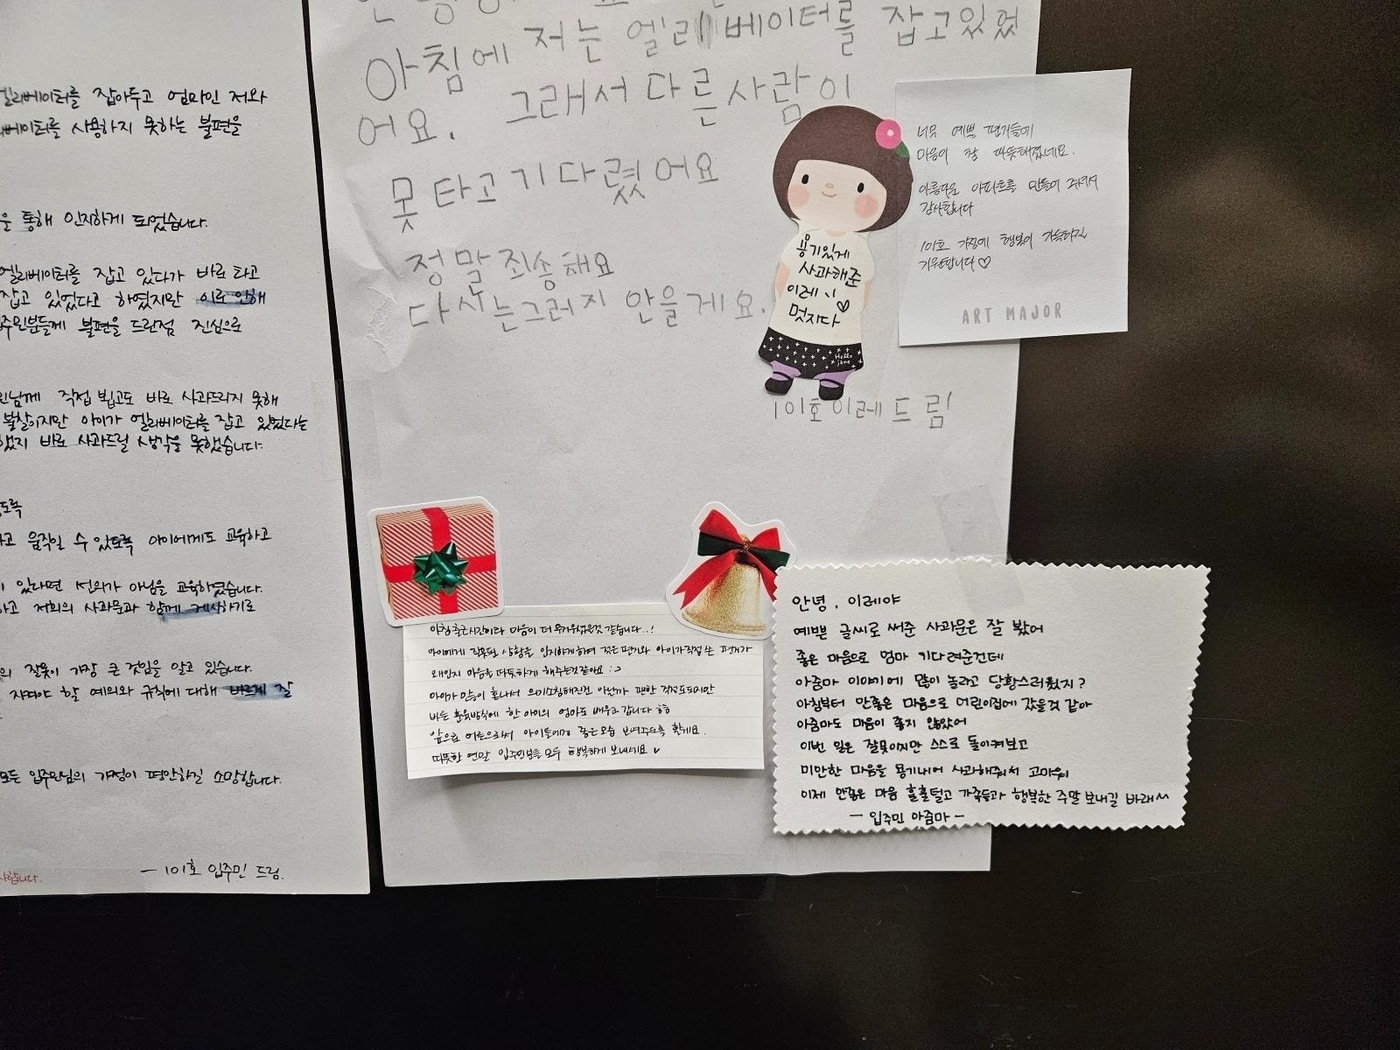 엘리베이터를 잡아두고 엄마인 저와
엘리베이터를 사용하지 못하는 불편을
을 통해 인지하게 되었습니다.
엘리베이터를 잡고 있다가 바로 타고
잡고 있었다고 하였지만 이로 인해
입주민분들께 불편을 드린점 진심으로
직접 뵙고도 바로 사과드리지 못해
불찰이지만 아이가 엘리베이터를 잡고 있었다는
했지 바로 사과드릴 생각을 못했습니다.
도록
하고 움직일 수 있도록 아이에게도 교육하고
있다면 선의가 아님을 교육하였습니다.
하고 저희의 사과문과 함께 게시하기로
의 잘못이 가장 큰 것임을 알고 있습니다.
지켜야 할 예의와 규칙에 대해 바르게 잘
모든 입주민님의 가정이 평안하길 소망합니다.
사합니다.
- 101호 입주민 드림.
아침에 저는 엘리베이터를 잡고있었
어요. 그래서 다른사람이
못타고 기다렸어요
정말 죄송해요
다시는그러지 안을게요.
101호이레드림
용기있게
사과해준
이레야 ♡
멋지다
Hello
jane
너무 예쁜 편지들에
마음이 참 따뜻해졌네요.
아름다운 아파트를 만들어 주셔서
감사합니다
101호 가정에 행복이 가득하길
기원합니다♡
ART MAJOR
아침출근시간이라 마음이 더 무거우셨을것 같습니다..!
아이에게 잘못된 상황을 인지하게하여 적은 편지와 아이가직접 쓴 편지가
왜인지 마음을 따뜻하게 해주는것같아요 :>
아이가 많이 혼나서 의기소침해진건 아닌가 괜한 걱정도되지만
바른 훈육방식에 한 아이의 엄마도 배우고 갑니다 ㅎㅎ
앞으로 어른으로써 아이들에게 좋은모습 보여주도록 할게요.
따뜻한 연말 입주민님들 모두 행복하게 보내세요 ♥
안녕, 이레야
예쁜 글씨로 써준 사과문은 잘 봤어
좋은 마음으로 엄마 기다려준건데
아줌마 이야기에 많이 놀라고 당황스러웠지?
아침부터 안좋은 마음으로 어린이집에 갔을것 같아
아줌마도 마음이 좋지 않았어
이번 일은 잘못이지만 스스로 돌이켜보고
미안한 마음을 용기내어 사과해줘서 고마워
이제 안좋은 마음 훌훌털고 가족들과 행복한 주말 보내길 바래^^
- 입주민 아줌마 -